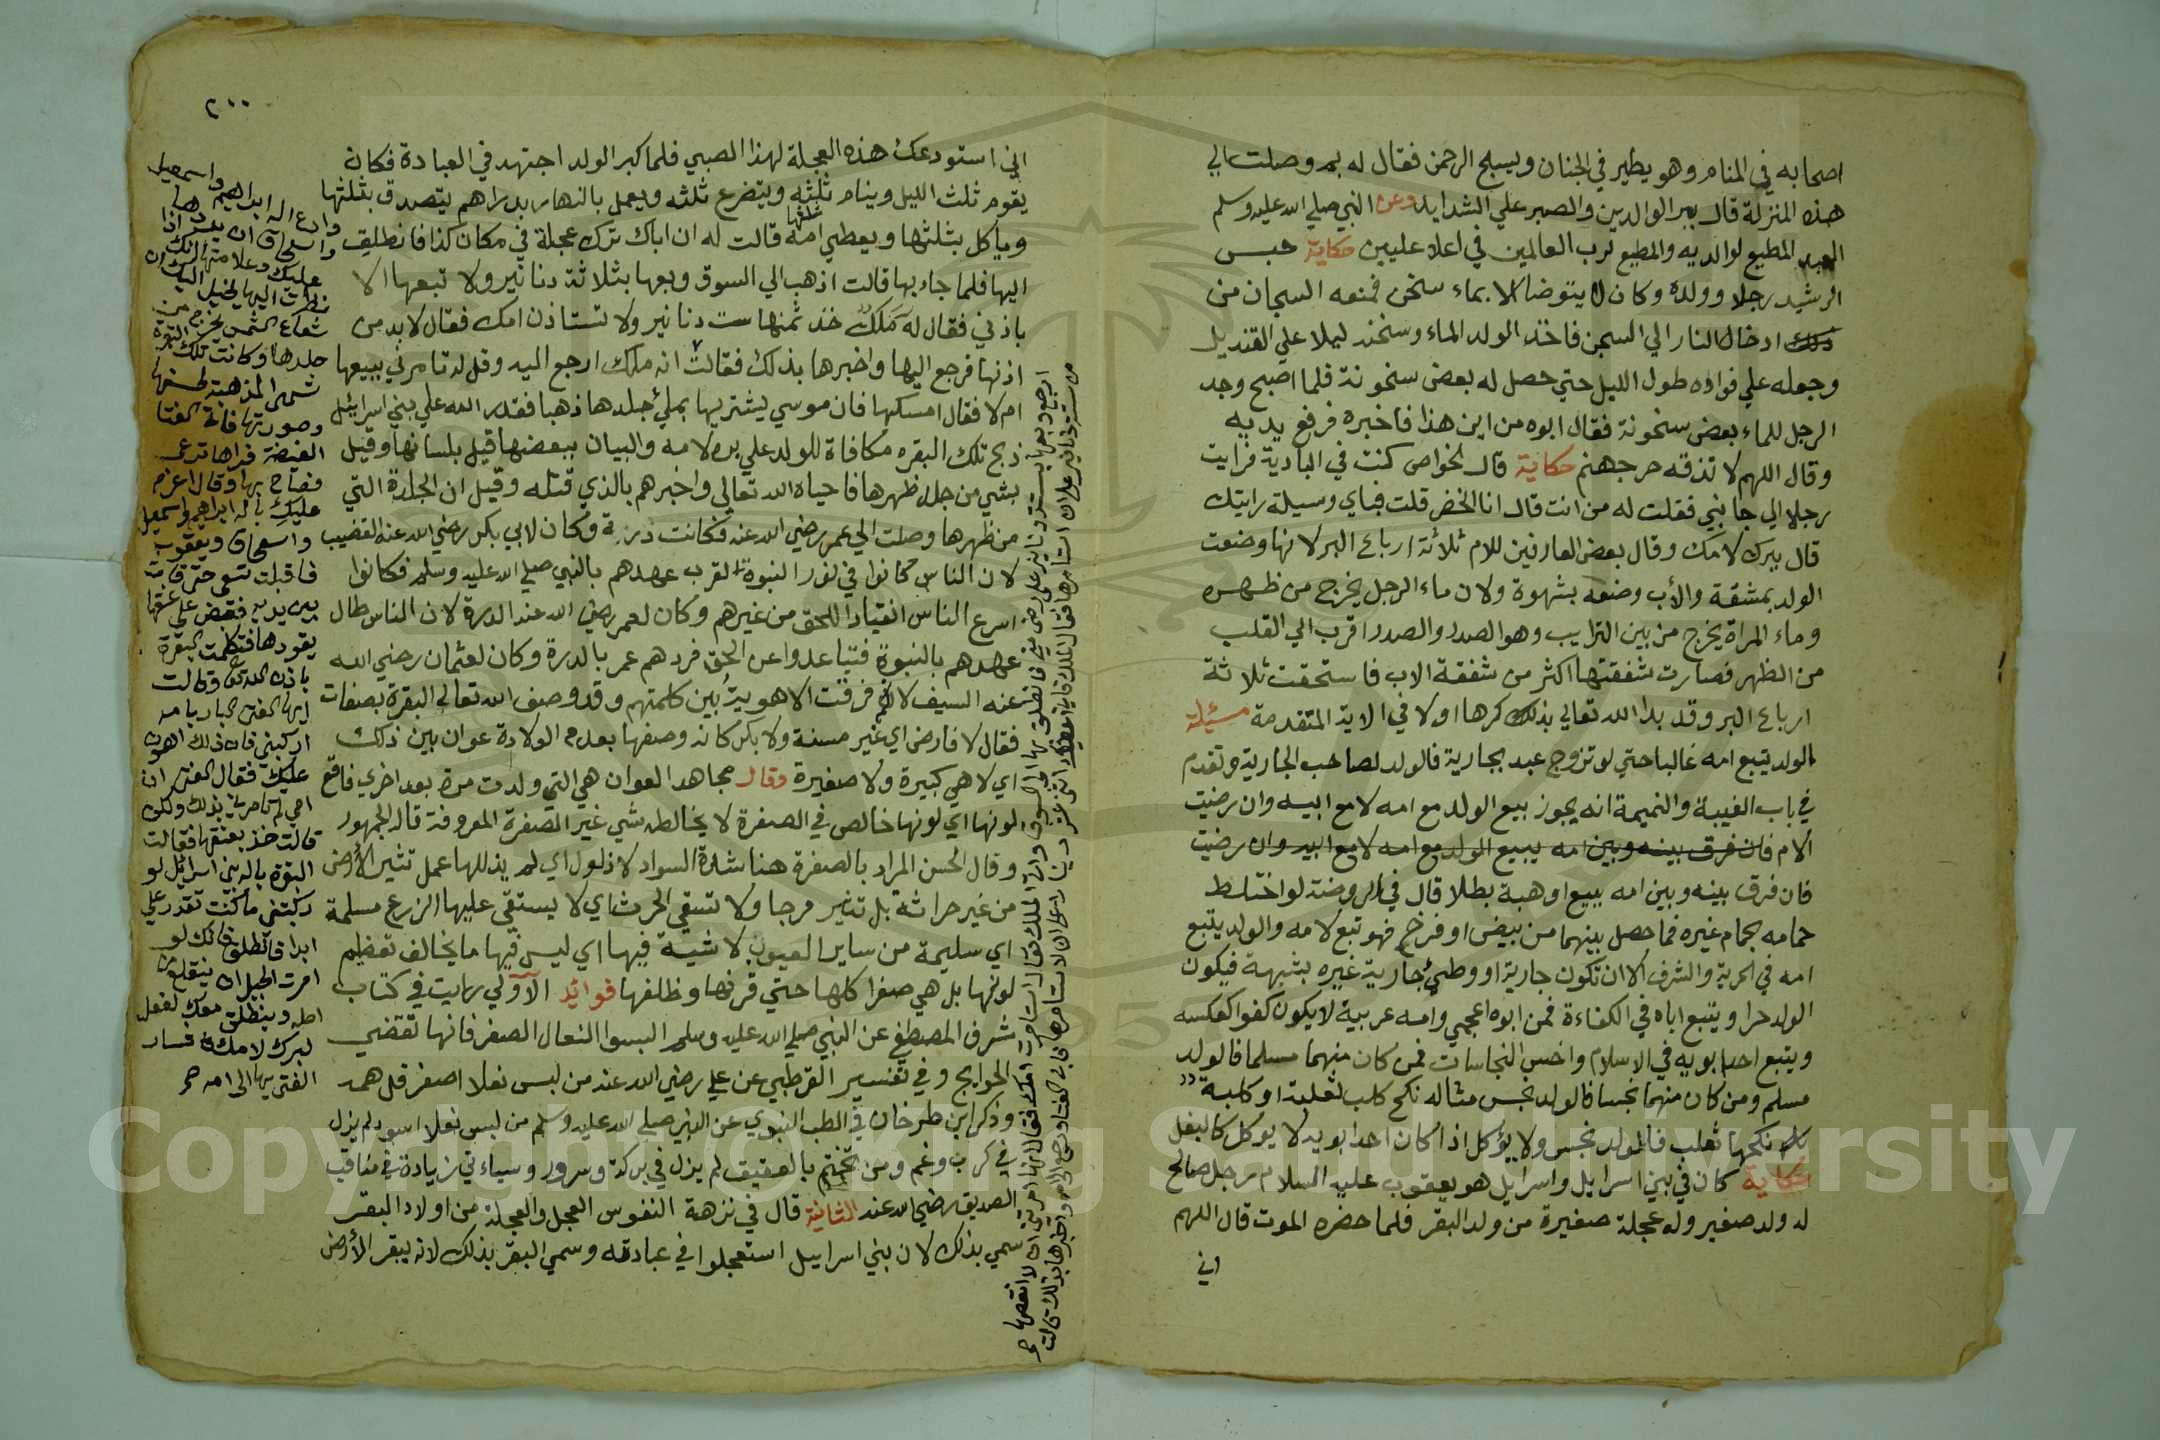 اصحابه في المنام وهو يطير في الجنان ويسبح الرحمن فقال له بم وصلت الي
هذه المنزلة قال ببر الوالدين والصبر علي الشدايد وعن النبي صلي الله عليه وسلم
العبد المطيع لوالديه والمطيع لرب العالمين في اعلا عليين حكاية حبس
الرشيد رجلا وولده وكان لا يتوضا الا بماء سخن فمنعه السجان من
ذلك ادخال النار الي السجن فاخذ الولد الماء وسخنه ليلا علي القنديل
وجعله علي فواده طول الليل حتي حصل له بعض سخونة فلما اصبح وجد
الرجل للماء بعض سخونة فقال ابوه من اين هذا فاخبره فرفع يديه
وقال اللهم لا تذقه حر جهنم حكاية قال الخواص كنت في البادية فرايت
رجلا الي جانبي فقلت له من انت قال انا الخضر قلت فباي وسيلة رايتك
قال ببرك لامك وقال بعض العارفين للام ثلاثة ارباع البر لانها وضعت
الولد بمشقة والأب وضعه بشهوة ولان ماء الرجل يخرج من ظهره
وماء المراة يخرج من بين الترايب وهو الصدر والصدر اقرب الي القلب
من الظهر فصارت شفقتها اكثر من شفقة الاب فاستحقت ثلاثة
ارباع البر وقد بدا الله تعالي بذكر كرها اولا في الاية المتقدمة مسئلة
الولد يتبع امه غالبا حتي لو تزوج عبد بجارية فالولد لصاحب الجارية وتقدم
في باب الغيبة والنميمة انه يجوز بيع الولد مع امه لا مع ابيه وان رضيت
الام فان فرق بينه وبين امه ببيع الولد مع امه لا مع ابيه وان رضيت
فان فرق بينه وبين امه ببيع او هبة بطلا قال في الروضة لو اختلط
حمامه بحمام غيره فما حصل بينهما من بيض او فرخ فهو تبع لامه والولد يتبع
امه في الحرية والشرف الا ان تكون جارية او وطئ جارية غيره بشبهة فيكون
الولد حرا ويتبع اباه في الكفاءة فمن ابوه اعجمي وامه عربية لا يكون كفوا كعكسه
ويتبع احد ابويه في الاسلام واخس النجاسات فمن كان منهما مسلما فالولد
مسلم ومن كان منهما نجسا فالولد نجس مثاله نكح كلب ثعلبة او كلبة
نكحها ثعلب فالمولد نجس ولا يؤكل اذا كان احد ابويه لا يوكل كالبغل
حكاية كان في بني اسرايل واسرايل هو يعقوب عليه السلام رجل صالح
له ولد صغير وله عجلة صغيرة من ولد البقر فلما حضره الموت قال اللهم
اني
٢٠٠
اني استودعك هذه العجلة لهذا الصبي فلما كبر الولد اجتهد في العبادة فكان
يقوم ثلث الليل وينام ثلثه ويتضرع ثلثه ويعمل بالنهار بدراهم يتصدق بثلثها
وياكل بثلثها ويعطي امه ثلثها قالت له ان اباك ترك عجلة في مكان كذا فانطليق
اليها فلما جاء بها قالت اذهب الي السوق وبعها بثلاثة دنانير ولا تبعها الا
باذني فقال له ملك خذ ثمنها ست دنانير ولا تستاذن امك فقال لا بد من
اذنها فرجع اليها واخبرها بذلك فقالت انه ملك ارجع اليه وقل له تامرني ببيعها
ام لا فقال امسكها فان موسي يشتريها بملئ جلدها ذهبا فقدر الله علي بني اسرائيل
ذبح تلك البقره مكافاة للولد علي بره لامه والبيان ببعضها قيل بلسانها وقيل
بشي من جلد ظهرها فاحياه الله تعالي واخبرهم بالذي قتله وقيل ان الجلدة التي
من ظهرها وصلت الي عمر رضي الله عنه فكانت درة وكان لابي بكر رضي الله عنه القضيب
لان الناس كانوا في نور النبوة لقرب عهدهم بالنبي صلي الله عليه وسلم فكانوا
اسرع الناس انقيادا للحق من غيرهم وكان لعمر رضي الله عنه الدرة لان الناس طال
عهدهم بالنبوة فتباعدوا عن الحق فردهم عمر بالدرة وكان لعثمان رضي الله
عنه السيف لان فرقت الاهوية بين كلمتهم وقد وصف الله تعالي البقرة بصفات
فقال لا فارض اي غير مسنة ولا بكر كانه وصفها بعدم الولادة عوان بين ذلك
اي لا هي كبيرة ولا صغيرة وقال مجاهد العوان هي التي ولدت مرة بعد اخري فاقع
لونها اي لونها خالص في الصفرة لا يخالطه شي غير الصفرة المعروفة قاله الجمهور
وقال الحسن المراد بالصفرة هنا شدة السواد لا ذلول اي لم يذللها عمل تثير الأرض
من غير حراثه بل تثير مرحا ولا تسقي الحرث اي لا يستقي عليها الزرع مسلمة
اي سليمة من ساير العيوب لا شية فيها اي ليس فيها ما يخالف تعظيم
لونها بل هي صفرا كلها حتي قرنها وظلفها فوائد الأولي رايت في كتاب
شرف المصطفي عن النبي صلي الله عليه وسلم البسوا النعال الصفر فانها تقضي
الحوايج وفي تفسير القرطبي عن علي رضي الله عنه من لبس نعلا اصفر قل همه
وذكر ابن طرخان في الطب النبوي عن النبي صلي الله عليه وسلم من لبس نعلا اسود لم يزل
في كرب وغم ومن تختم بالعقيق لم يزل في بركة وسرور وسياتي زيادة في مناقب
الصديق رضي الله عنه الثانية قال في نزهة النفوس العجل والعجلة من اولاد البقر
سمي بذلك لان بني اسراييل استعجلوا في عبادته وسمي البقر بذلك لانه يبقر الأرض
وادع اله ابراهيم واسمعيل
واسحاق ان يردها
عليك وعلامتها انك اذا
نظرت اليها يخيل اليك ان
شعاع الشمس يخرج من
جلدها وكانت تلك البقرة
تسمي المذهبة لحسنها
وصورتها فاتي الفتا
الغيضة فراها ترعي
فصاح بها وقال اعزم
عليك باله ابراهيم واسمعيل
واسحاق ويعقوب
فاقبلت تسعي حتي قامت
بين يديه فقبض علي عنقها
يقودها فتكلمت البقرة
باذن الله تعالي وقالت
ايها الفتي البار بامه
اركبني فان ذلك اهون
عليك فقال الفتي ان
امي لم تامرني بذلك ولكن
قالت خذ بعنقها فقالت
البقرة باله بني اسرائيل لو
ركبتني ما كنت تقدر علي
ابدا فانطلق فانك لو
امرت الجبل ان ينقلع من
اصله وينطلق معك لفعل
لبرك لامك فسار
الفتي بها الي امه صح
Copyright © King Saud University